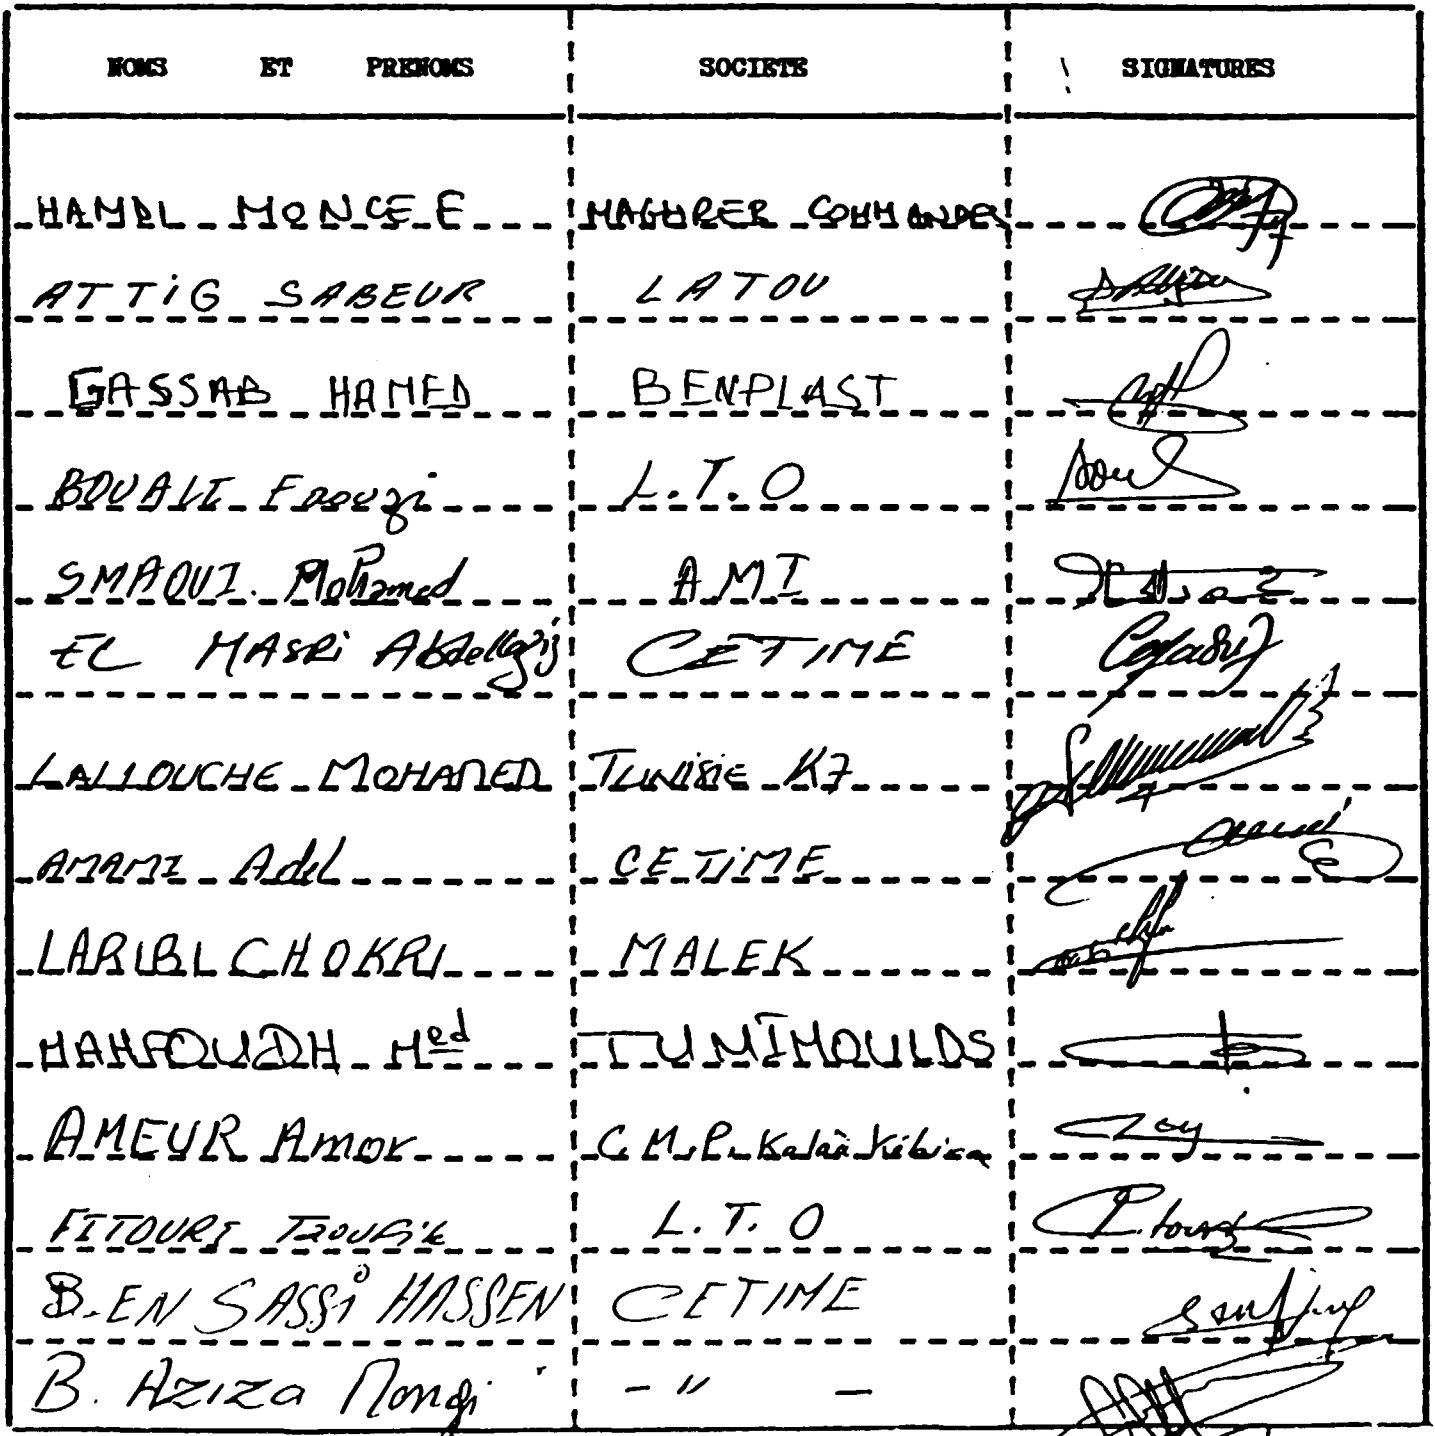 NOMS ET PRENOMS SOCIETE SIGNATURES
HAMDI MONCEF MAGHREB COMMANDES
ATTIG SABEUR LATOU
GASSAB HAMED BENPLAST
BOUALI Faouzi L.T.O
SMAOUI Mohamed A.M.I
EL MASRi Abdellaziz CETIME
LALLOUCHE MOHAMED TUNISIE K7
AMAMI Adel CETIME
LARIBI CHOKRI MALEK
MAHFOUDH Med TUNIMOULDS
AMEUR Amor C.M.P. Kalaâ Kebira
FITOURI Taoufik L.T.O
BEN SASSi HASSEN CETIME
B. AZIZA Mongi - " -